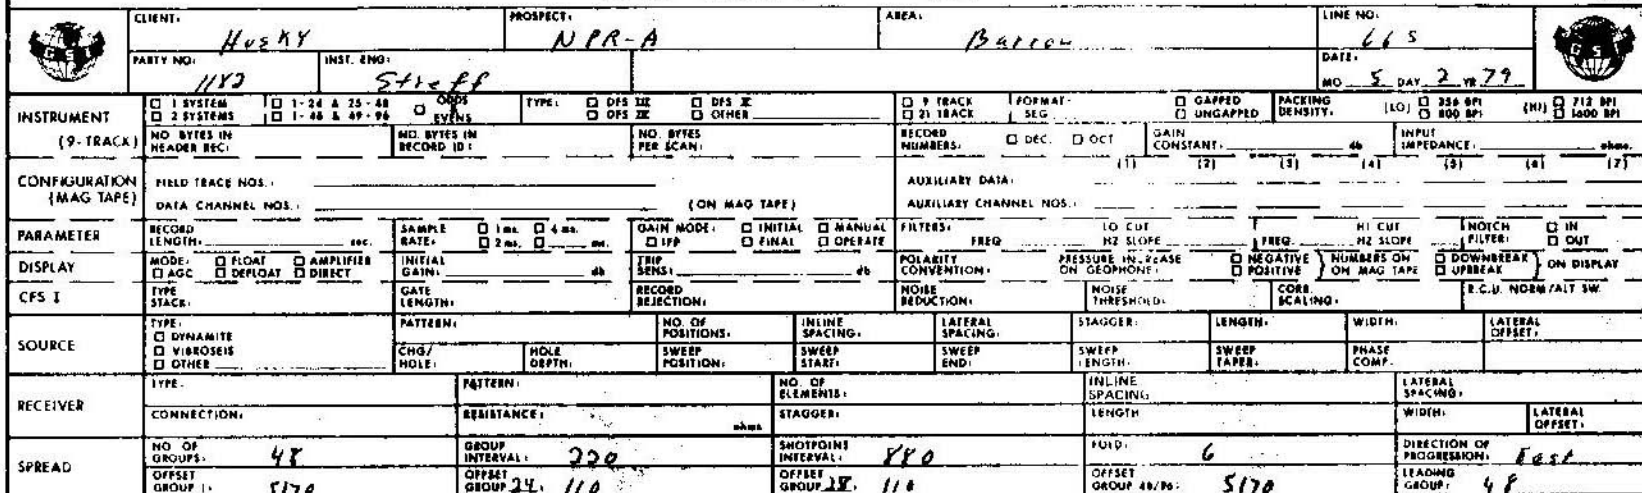 CLIENT: Husky PROSPECT: NPR-A AREA: Barrow LINE NO: 66 S
GSI GSI
PARTY NO: 1182 INST. ENG: Streff DATE: MO 5 DAY 2 YR 79
INSTRUMENT (9-TRACK)
☐ 1 SYSTEM ☐ 1-24 & 25-48 ☐ ODDS & EVENS TYPE: ☐ DFS III ☐ DFS V ☐ 9 TRACK FORMAT- ☐ GAPPED PACKING DENSITY: (LO) ☐ 356 BPI (HI) ☐ 712 BPI
☐ 2 SYSTEMS ☐ 1-48 & 49-96 ☐ DFS IV ☐ OTHER ☐ 21 TRACK SEG ☐ UNGAPPED ☐ 800 BPI ☐ 1600 BPI
NO BYTES IN HEADER REC: NO. BYTES IN RECORD ID: NO. BYTES PER SCAN: RECORD NUMBERS: ☐ DEC. ☐ OCT GAIN CONSTANT: db INPUT IMPEDANCE: ohms.
CONFIGURATION (MAG TAPE)
(1) (2) (3) (4) (5) (6) (7)
FIELD TRACE NOS.: AUXILIARY DATA:
DATA CHANNEL NOS.: (ON MAG TAPE) AUXILIARY CHANNEL NOS.:
PARAMETER RECORD LENGTH: sec. SAMPLE RATE: ☐ 1 ms. ☐ 4 ms. ☐ 2 ms. ☐ ms. GAIN MODE: ☐ INITIAL ☐ MANUAL ☐ IFP ☐ FINAL ☐ OPERATE FILTERS: FREQ LO CUT HZ SLOPE FREQ HI CUT HZ SLOPE NOTCH FILTER: ☐ IN ☐ OUT
DISPLAY MODE: ☐ FLOAT ☐ AMPLIFIER ☐ AGC ☐ DEFLOAT ☐ DIRECT INITIAL GAIN: db TRIP SENS: db POLARITY CONVENTION: PRESSURE INCREASE ON GEOPHONE: ☐ NEGATIVE ☐ POSITIVE } NUMBERS ON MAG TAPE ☐ DOWNBREAK ☐ UPBREAK } ON DISPLAY
CFS I TYPE STACK: GATE LENGTH: RECORD REJECTION: NOISE REDUCTION: NOISE THRESHOLD: CORR. SCALING: R.C.U. NORM/ALT SW.
SOURCE TYPE: ☐ DYNAMITE ☐ VIBROSEIS ☐ OTHER
PATTERN: NO. OF POSITIONS: INLINE SPACING: LATERAL SPACING: STAGGER: LENGTH: WIDTH: LATERAL OFFSET:
CHG/HOLE: HOLE DEPTH: SWEEP POSITION: SWEEP START: SWEEP END: SWEEP LENGTH: SWEEP TAPER: PHASE COMP.
RECEIVER TYPE: PATTERN: NO. OF ELEMENTS: INLINE SPACING LATERAL SPACING:
CONNECTION: RESISTANCE: ohms STAGGER: LENGTH WIDTH: LATERAL OFFSET:
SPREAD NO. OF GROUPS: 48 GROUP INTERVAL: 220 SHOTPOINT INTERVAL: 880 FOLD: 6 DIRECTION OF PROGRESSION: East
OFFSET GROUP 1: 5170 OFFSET GROUP 24: 110 OFFSET GROUP 25: 110 OFFSET GROUP 48/96: 5170 LEADING GROUP: 48